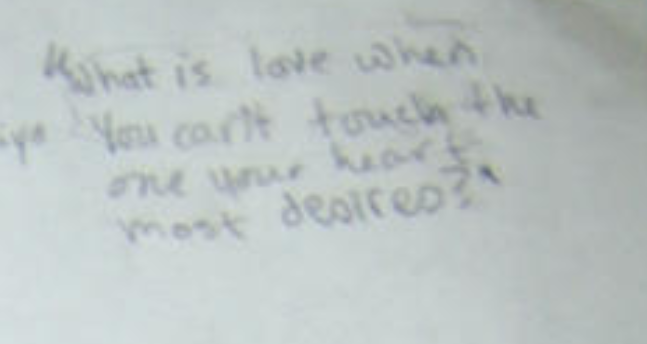 "What is love when
You can't touch the
one your heart
most desires?"